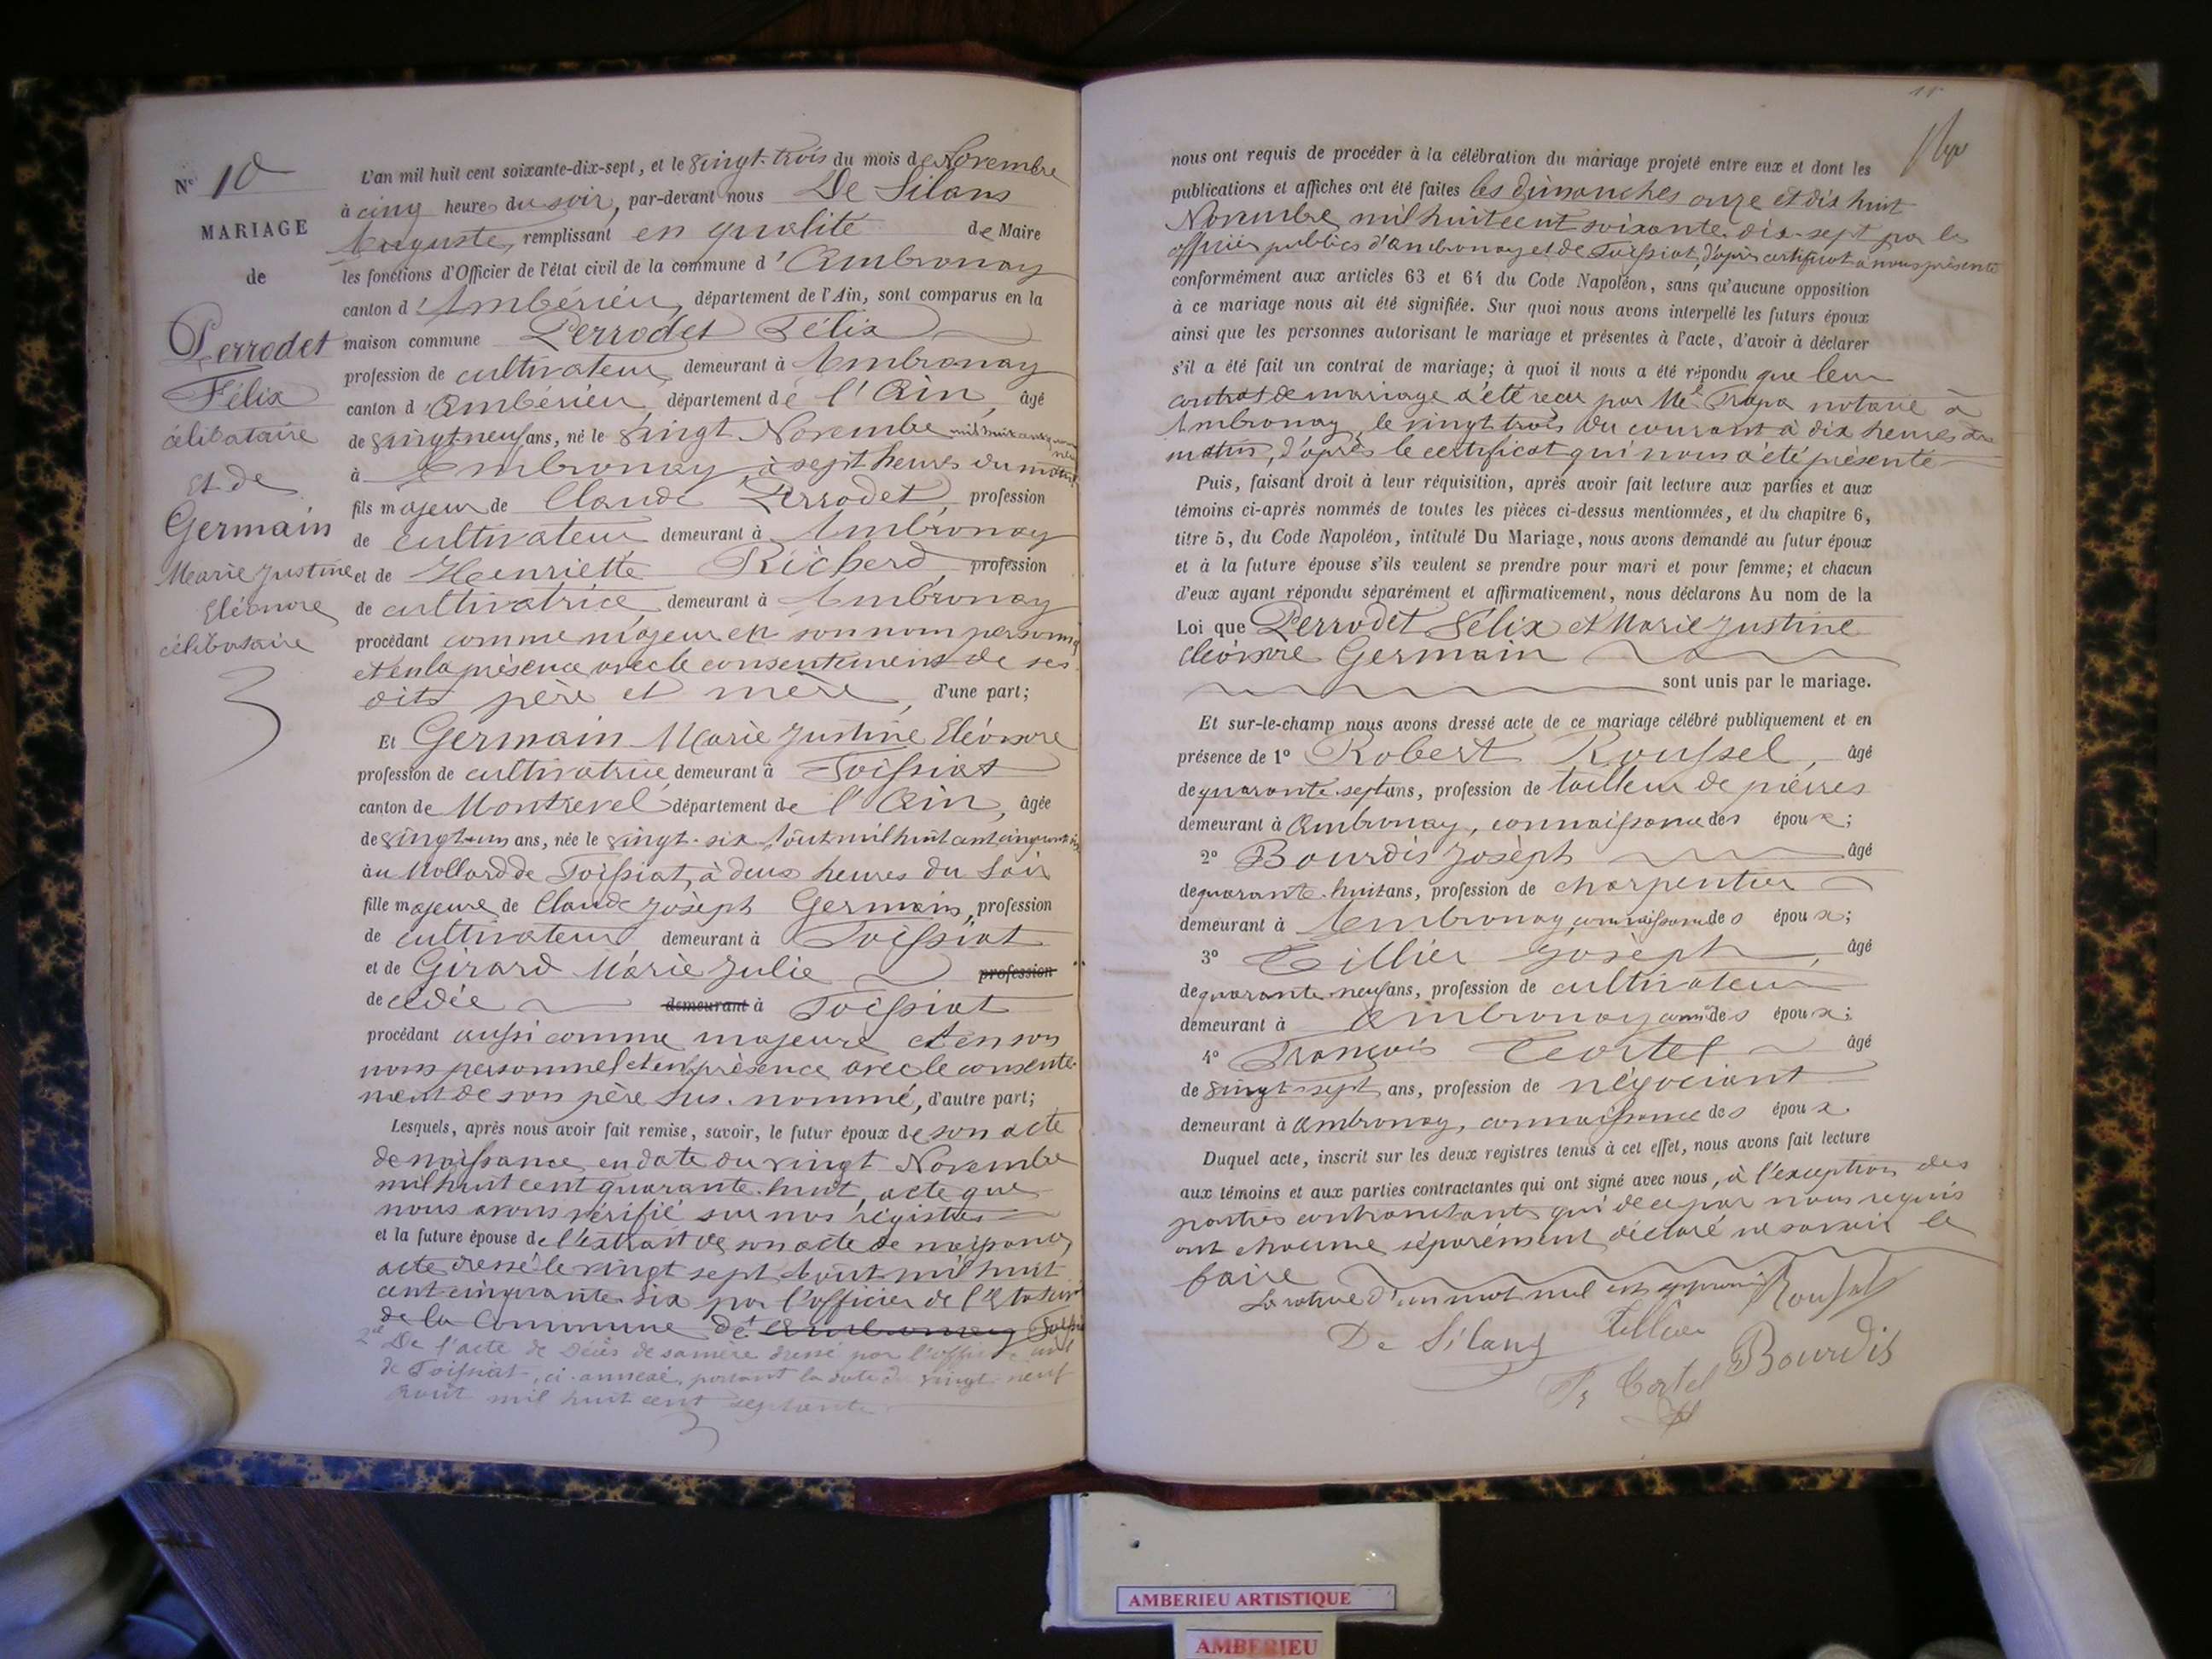 N° 10
MARIAGE
de
Perrodet
Félix
célibataire
et de
Germain
Marie Justine
Eléonore
célibataire
L'an mil huit cent soixante-dix-sept, et le vingt-trois du mois de Novembre
à cinq heures du soir, par-devant nous De Silans
Auguste, remplissant en qualité de Maire
les fonctions d'Officier de l'état civil de la commune d'Ambronay
canton d'Ambérieu, département de l'Ain, sont comparus en la
maison commune Perrodet Félix
profession de cultivateur demeurant à Ambronay
canton d'Ambérieu département de l'Ain, âgé
de vingt-neuf ans, né le vingt Novembre mil huit cent
à Ambronay à sept heures du matin
fils majeur de Claude Perrodet, profession
de cultivateur demeurant à Ambronay
et de Henriette Richerd, profession
de cultivatrice demeurant à Ambronay
procédant comme majeur en son nom personnel
et en la présence avec le consentement de ses
dits père et mère, d'une part;
Et Germain Marie Justine Eléonore
profession de cultivatrice demeurant à Foissiat
canton de Montrevel département de l'Ain, âgée
de vingt-un ans, née le vingt-six Août mil huit cent cinquante six
au Mollard de Foissiat, à deux heures du Soir
fille majeure de Claude Joseph Germain, profession
de cultivateur demeurant à Foissiat
et de Girard Marie Julie profession
de cédée demeurant à Foissiat
procédant aussi comme majeure et en son
nom personnel et en présence avec le consente-
ment de son père sus-nommé, d'autre part;
Lesquels, après nous avoir fait remise, savoir, le futur époux de son acte
de naissance en date du vingt Novembre
mil huit cent quarante-huit, acte que
nous avons vérifié sur nos régistres
et la future épouse de l'extrait de son acte de naissance,
acte dressé le vingt sept Août mil huit
cent cinquante-six par l'officier de l'Etat civil
de la Commune de Ambronay Foissiat
2° De l'acte de décès de sa mère dressé par l'officier civil
de Foissiat, ci-annexé, portant la date du vingt-neuf
Août mil huit cent septante
11
nous ont requis de procéder à la célébration du mariage projeté entre eux et dont les
publications et affiches ont été faites les dimanches onze et dix huit
Novembre mil huit cent soixante-dix-sept par les
officiers publics d'Ambronay et de Foissiat, d'après certificat à nous présenté
conformément aux articles 63 et 64 du Code Napoléon, sans qu'aucune opposition
à ce mariage nous ait été signifiée. Sur quoi nous avons interpellé les futurs époux
ainsi que les personnes autorisant le mariage et présentes à l'acte, d'avoir à déclarer
s'il a été fait un contrat de mariage; à quoi il nous a été répondu que leur
contrat de mariage a été reçu par Me notaire à
Ambronay, le vingt trois du courant à dix heures du
matin, d'après le certificat qui nous a été présenté
Puis, faisant droit à leur réquisition, après avoir fait lecture aux parties et aux
témoins ci-après nommés de toutes les pièces ci-dessus mentionnées, et du chapitre 6,
titre 5, du Code Napoléon, intitulé Du Mariage, nous avons demandé au futur époux
et à la future épouse s'ils veulent se prendre pour mari et pour femme; et chacun
d'eux ayant répondu séparément et affirmativement, nous déclarons Au nom de la
Loi que Perrodet Félix et Marie Justine
Eléonore Germain
sont unis par le mariage.
Et sur-le-champ nous avons dressé acte de ce mariage célébré publiquement et en
présence de 1° Robert Roussel, âgé
de quarante-sept ans, profession de tailleur de pierres
demeurant à Ambronay, connaissance des époux;
2° Bourdis Joseph âgé
de quarante-huit ans, profession de charpentier
demeurant à Ambronay, connaissance des époux;
3° Tillier Joseph, âgé
de quarante-neuf ans, profession de cultivateur
demeurant à Ambronay ami des époux;
4° François Cortel âgé
de vingt-sept ans, profession de négociant
demeurant à Ambronay, connaissance des époux
Duquel acte, inscrit sur les deux registres tenus à cet effet, nous avons fait lecture
aux témoins et aux parties contractantes qui ont signé avec nous, à l'exception des
parties contractants qui de ce par nous requis
ont chacune séparément déclaré ne savoir le
faire
La rature d'un mot nul est approuvé Roussel
De Silans Tillier
Fs Cortel Bourdis
AMBERIEU ARTISTIQUE
AMBERIEU